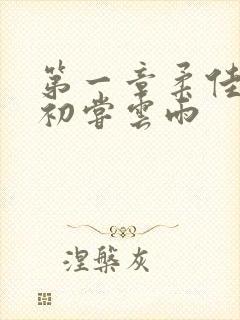 第一章柔佳
初尝雲雨
涅槃灰